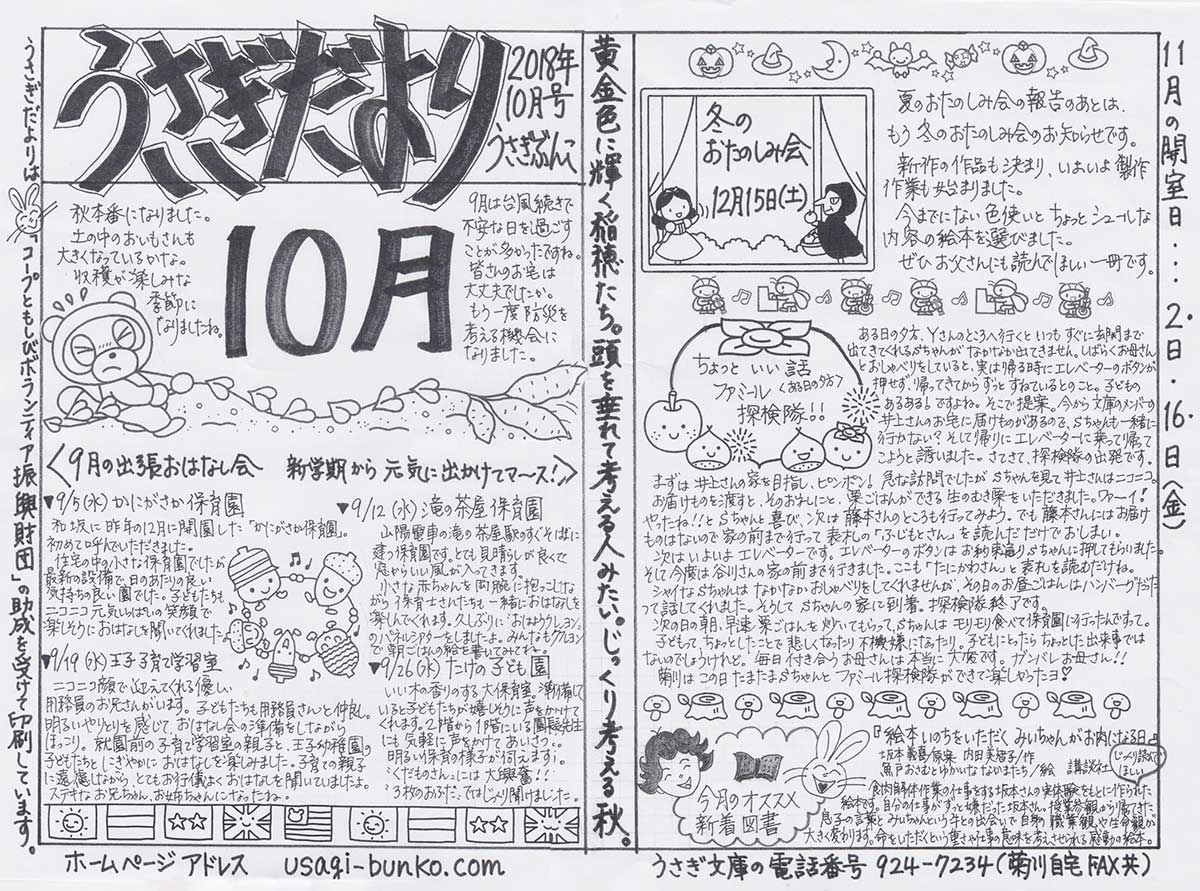 うさぎだより
2018年
10月号
うさぎぶんこ
秋本番になりました。
土の中のおいもさんも
大きくなっているかな。
収穫が楽しみな
季節に
なりましたね。
10月
9月は台風続きで
不安な日を過ごす
ことが多かったですね。
皆さんのお宅は
大丈夫でしたか。
もう一度防災を
考える機会に
なりました。
〈9月の出張おはなし会 新学期から元気に出かけてマ〜ス!〉
▼9/5(水)かにがさか保育園
和坂に昨年の12月に開園した「かにがさか保育園」。
初めて呼んでいただきました。
住宅の中の小さな保育園でしたが
最新の設備で、日のあたりの良い
気持ちの良い園でした。子どもたちも
ニコニコ元気いっぱいの笑顔で
楽しそうにおはなしを聞いてくれました。
▼9/12(水)滝の茶屋保育園
山陽電車の滝の茶屋駅のすぐそばに
建つ保育園です。とても見晴らしが良くて
窓からいい風が入ってきます。
小さな赤ちゃんを両腕に抱っこしな
がら保育士さんたちも一緒におはなしを
楽しんでくれます。久しぶりに「おはようクレヨン」の
パネルシアターをしましたよ。みんなもクレヨン
で朝ごはんの絵を書いてみてね。
▼9/19(水)王子子育て学習室
ニコニコ顔で迎えてくれる優しい
用務員のお兄さんがいます。子どもたちも用務員さんと仲良し。
明るいやりとりを感じて、おはなし会の準備をしながら
ほっこり。就園前の子育て学習室の親子と、王子幼稚園の
子どもたちとにぎやかにおはなしを楽しみました。子育ての親子
に遠慮しながら、とてもお行儀よくおはなしを聞いていましたよ。
ステキなお兄ちゃん、お姉ちゃんになったね。
▼9/26(水)たけの子ども園
いい木の香りのする大保育室。準備して
いると子どもたちが嬉しそうに声をかけて
くれます。2階から1階にいる園長先生
にも気軽に声をかけてあいさつ。
明るい保育の様子が伺えます。
「くだもの」さんには大興奮!!
「3枚のおふだ」ではじっくり聞けました。
うさぎだよりは
「コープともしびボランティア振興財団」の助成を受けて印刷しています。
黄金色に輝く稲穂たち。頭を垂れて考える人みたい。じっくり考える秋。
冬の
おたのしみ会
12月15日(土)
夏のおたのしみ会の報告のあとは、
もう冬のおたのしみ会のお知らせです。
新作の作品も決まり、いよいよ製作
作業も始まりました。
今までにない色使いとちょっとシュールな
内容の絵本を選びました。
ぜひお父さんにも読んでほしい一冊です。
ちょっといい話
ファミール〈ある日の夕方〉
探検隊!!
ある日の夕方、Yさんのところへ行くといつもすぐに玄関まで
出てきてくれるSちゃんがなかなか出てきません。しばらくお母さん
とおしゃべりをしていると、実は帰る時にエレベーターのボタンが
押せず、帰ってきてからずっとすねているとのこと。子どもの
あるある!ですね。そこで提案。今から文庫のメンバーの
井上さんのお宅に届けものがあるので、Sちゃんも一緒に
行かない?そして帰りにエレベーターに乗って帰って
こようと誘いました。さてさて、探検隊の出発です。
まずは井上さんの家を目指し、ピンポン!急な訪問でしたがSちゃんを見て井上さんはニコニコ。
お届けものを渡すと、そのお礼にと、栗ごはんができる生のむき栗をいただきました。ワァーイ!
やったね!!とSちゃんと喜び、次は藤本さんのところも行ってみよう。でも藤本さんにはお届け
ものはないので家の前まで行って表札の「ふじもとさん」を読んだだけでおしまい。
次はいよいよエレベーターです。エレベーターのボタンはお約束通りSちゃんに押してもらいました。
そして今度は谷川さんの家の前まで行きました。ここも「たにかわさん」と表札を読むだけね。
シャイなSちゃんはなかなかおしゃべりをしてくれませんが、その日のお昼ごはんはハンバーグだた
って話してくれました。そうしてSちゃんの家に到着。探検隊終了です。
次の日の朝、早速栗ごはんを炊いてもらって、Sちゃんはモリモリ食べて保育園に行ったんですって。
子どもって、ちょっとしたことで悲しくなったり不機嫌になったり。子どもにしたらちょっとした出来事では
ないのでしょうけれど。毎日付き合うお母さんは本当に大変です。ガンバレお母さん!!
菊川はこの日たまたまSちゃんとファミール探検隊ができて楽しかったヨ♡
今月のオススメ
新着図書
『絵本いのちをいただく みいちゃんがお肉になる日』
坂本義喜/原案 内田美智子/作
魚戸おさむとゆかいななかまたち/絵 講談社
じっくり読んで
ほしい
食肉解体作業の仕事をする坂本さんの実体験をもとに作られた
絵本です。自分の仕事がずっと嫌だった坂本さん。授業参観から帰ってきた
息子の言葉とみいちゃんという牛との出会いで自身の職業観や生命観が
大きく変わります。命をいただくという重さや仕事の意味を考えさせられる感動の絵本。
11月の開室日・・・・2日・16日(金)
ホームページアドレス usagi-bunko.com
うさぎ文庫の電話番号 924-7234(菊川自宅FAX共)